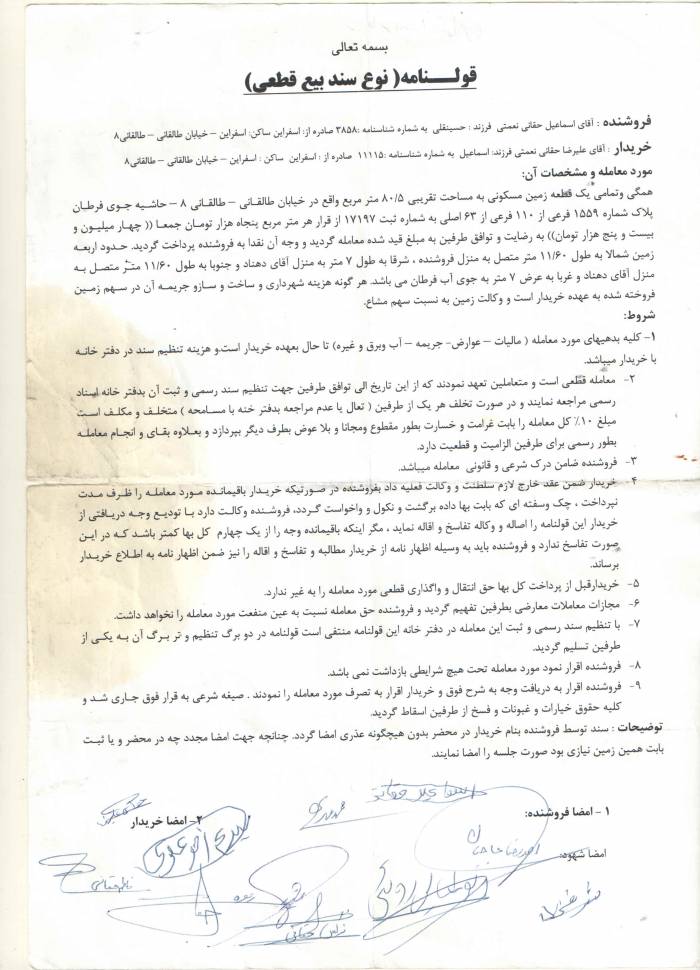 بسمه تعالی
قولـــنامه( نوع سند بیع قطعی)
فروشنده : آقای اسماعیل حقانی نعمتی فرزند : حسینقلی به شماره شناسنامه :۳۸۵۸ صادره از: اسفراین ساکن: اسفراین – خیابان طالقانی – طالقانی۸
خریدار : آقای علیرضا حقانی نعمتی فرزند: اسماعیل به شماره شناسنامه :۱۱۱۱۵ صادره از : اسفراین ساکن : اسفراین – خیابان طالقانی – طالقانی۸
مورد معامله و مشخصات آن:
همگی وتمامی یک قطعه زمین مسکونی به مساحت تقریبی ۸۰/۵ متر مربع واقع در خیابان طالقانی – طالقانی ۸ – حاشیه جوی فرطان
پلاک شماره ۱۵۵۹ فرعی از ۱۱۰ فرعی از ۶۳ اصلی به شماره ثبت ۱۷۱۹۷ از قرار هر متر مربع پنجاه هزار تومان جمعا (( چهار میلیون و
بیست و پنج هزار تومان)) به رضایت و توافق طرفین به مبلغ قید شده معامله گردید و وجه آن نقدا به فروشنده پرداخت گردید. حدود اربعه
زمین شمالا به طول ۱۱/۶۰ متر متصل به منزل فروشنده ، شرقا به طول ۷ متر به منزل آقای دهناد و جنوبا به طول ۱۱/۶۰ متر متصل به
منزل آقای دهناد و غربا به عرض ۷ متر به جوی آب فرطان می باشد. هر گونه هزینه شهرداری و ساخت و سازو جریمه آن در سهم زمین
فروخته شده به عهده خریدار است و وکالت زمین به نسبت سهم مشاع.
شروط:
۱- کلیه بدهیهای مورد معامله ( مالیات – عوارض- جریمه – آب وبرق و غیره) تا حال بعهده خریدار است.و هزینه تنظیم سند در دفتر خانه
با خریدار میباشد.
۲- معامله قطعی است و متعاملین تعهد نمودند که از این تاریخ الی توافق طرفین جهت تنظیم سند رسمی و ثبت آن بدفتر خانه اسناد
رسمی مراجعه نمایند و در صورت تخلف هر یک از طرفین ( تعال یا عدم مراجعه بدفتر خنه با مسامحه ) متخلف و مکلف است
مبلغ ۱۰٪ کل معامله را بابت غرامت و خسارت بطور مقطوع ومجانا و بلا عوض بطرف دیگر بپردازد و بعلاوه بقای و انجام معامله
بطور رسمی برای طرفین الزامیت و قطعیت دارد.
۳- فروشنده ضامن درک شرعی و قانونی معامله میباشد.
۴- خریدار ضمن عقد خارج لازم سلطنت و وکالت فعلیه داد بفروشنده در صورتیکه خریدار باقیمانده مورد معامله را ظرف مدت
نپرداخت ، چک وسفته ای که بابت بها داده برگشت و نکول و واخواست گردد، فروشنده وکالت دارد با تودیع وجه دریافتی از
خریدار این قولنامه را اصاله و وکاله تفاسخ و اقاله نماید ، مگر اینکه باقیمانده وجه را از یک چهارم کل بها کمتر باشد که در این
صورت تفاسخ ندارد و فروشنده باید به وسیله اظهار نامه از خریدار مطالبه و تفاسخ و اقاله را نیز ضمن اظهار نامه به اطلاع خریدار
برساند.
۵- خریدارقبل از پرداخت کل بها حق انتقال و واگذاری قطعی مورد معامله را به غیر ندارد.
۶- مجازات معاملات معارضی بطرفین تفهیم گردید و فروشنده حق معامله نسبت به عین منفعت مورد معامله را نخواهد داشت.
۷- با تنظیم سند رسمی و ثبت این معامله در دفتر خانه این قولنامه منتفی است قولنامه در دو برگ تنظیم و تر برگ آن به یکی از
طرفین تسلیم گردید.
۸- فروشنده اقرار نمود مورد معامله تحت هیچ شرایطی بازداشت نمی باشد.
۹- فروشنده اقرار به دریافت وجه به شرح فوق و خریدار اقرار به تصرف مورد معامله را نمودند . صیغه شرعی به قرار فوق جاری شد و
کلیه حقوق خیارات و غبونات و فسخ از طرفین اسقاط گردید.
توضیحات : سند توسط فروشنده بنام خریدار در محضر بدون هیچگونه عذری امضا گردد. چنانچه جهت امضا مجدد چه در محضر و یا ثبت
بابت همین زمین نیازی بود صورت جلسه را امضا نمایند.
۱ - امضا فروشنده:
۲- امضا خریدار
امضا شهود: